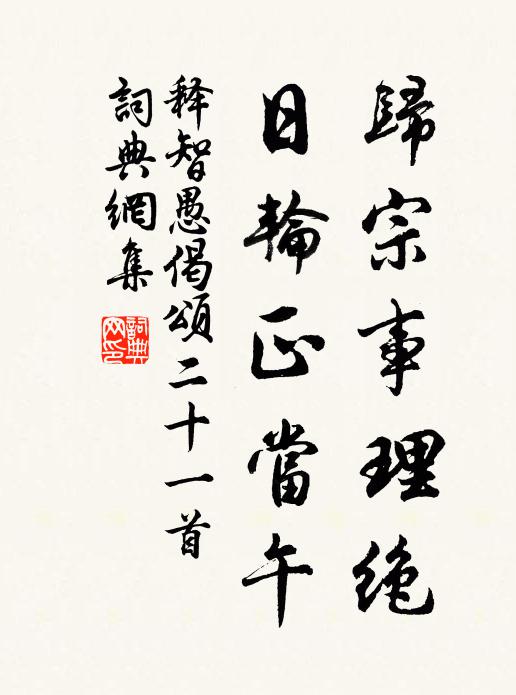 歸宗事理絶
日輪正當午
释智愚偈頌二十一首
詞典網集
詞典网印